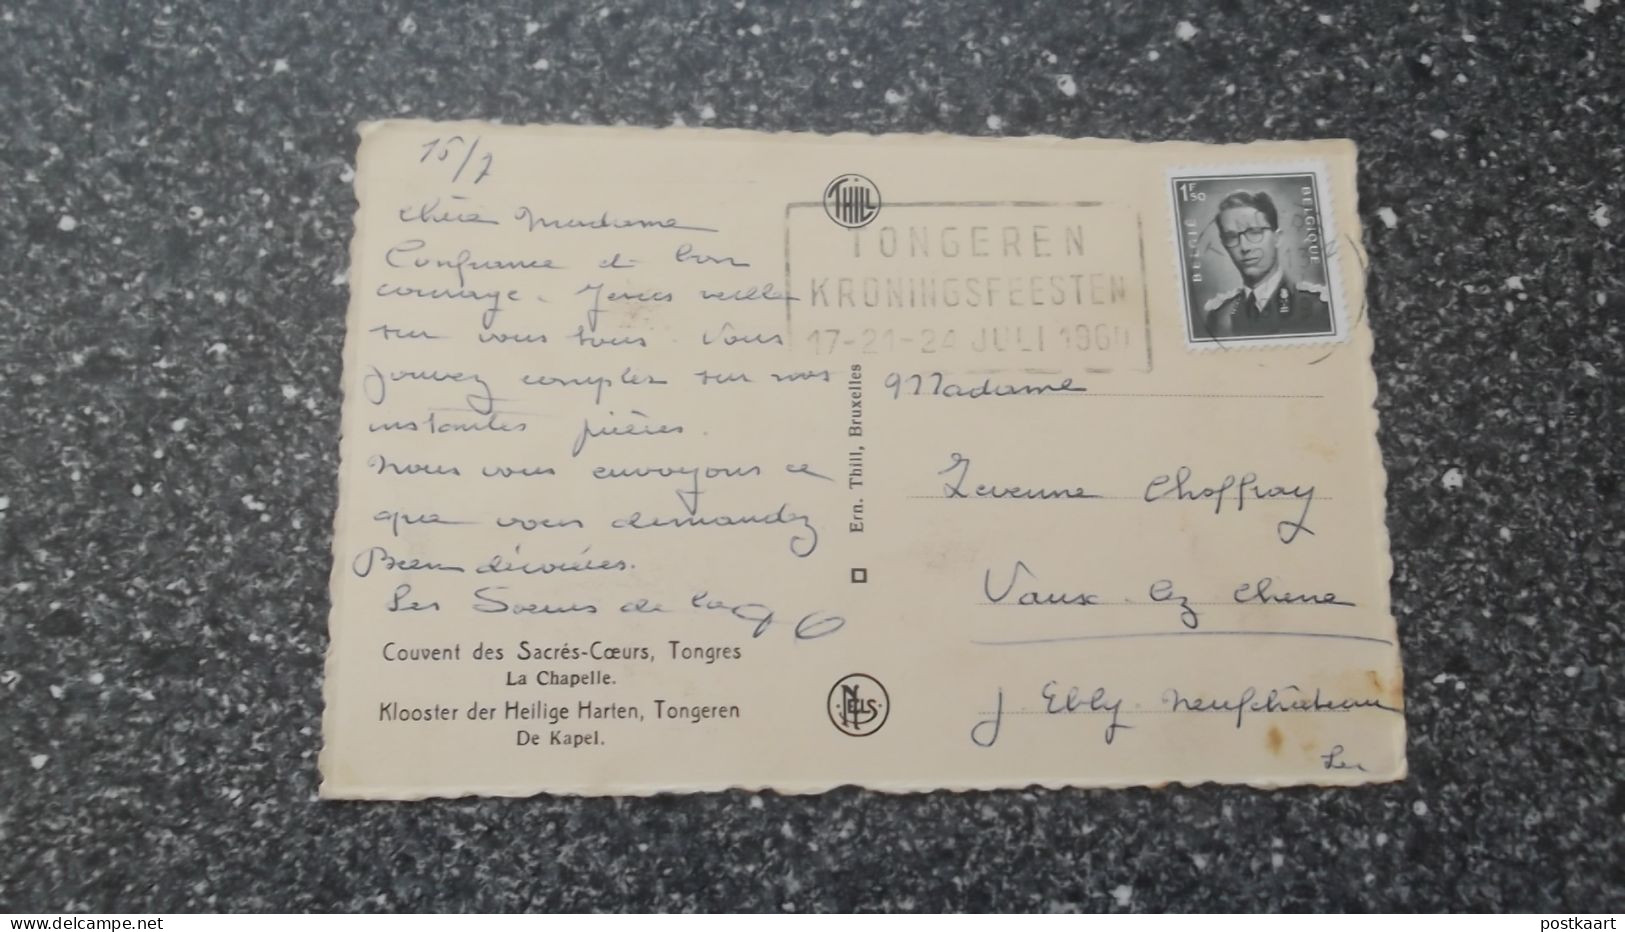 15/7
Chère Madame
Confiance et bon
courage. Jésus veille
sur vous tous. Vous
pouvez compter sur nos
instantes prières.
Nous vous envoyons ce
que vous demandez
Bien dévouées.
Les Soeurs de la
Couvent des Sacrés-Cœurs, Tongres
La Chapelle.
Klooster der Heilige Harten, Tongeren
De Kapel.
THILL
Ern. Thill, Bruxelles
NELS
TONGEREN
KRONINGSFEESTEN
17-21-24 JULI 1960
1F50
BELGIË
BELGIQUE
Madame
Choffray
Vaux lez Chene
Ebly. Neufchâteau
delcampe.net
postkaart